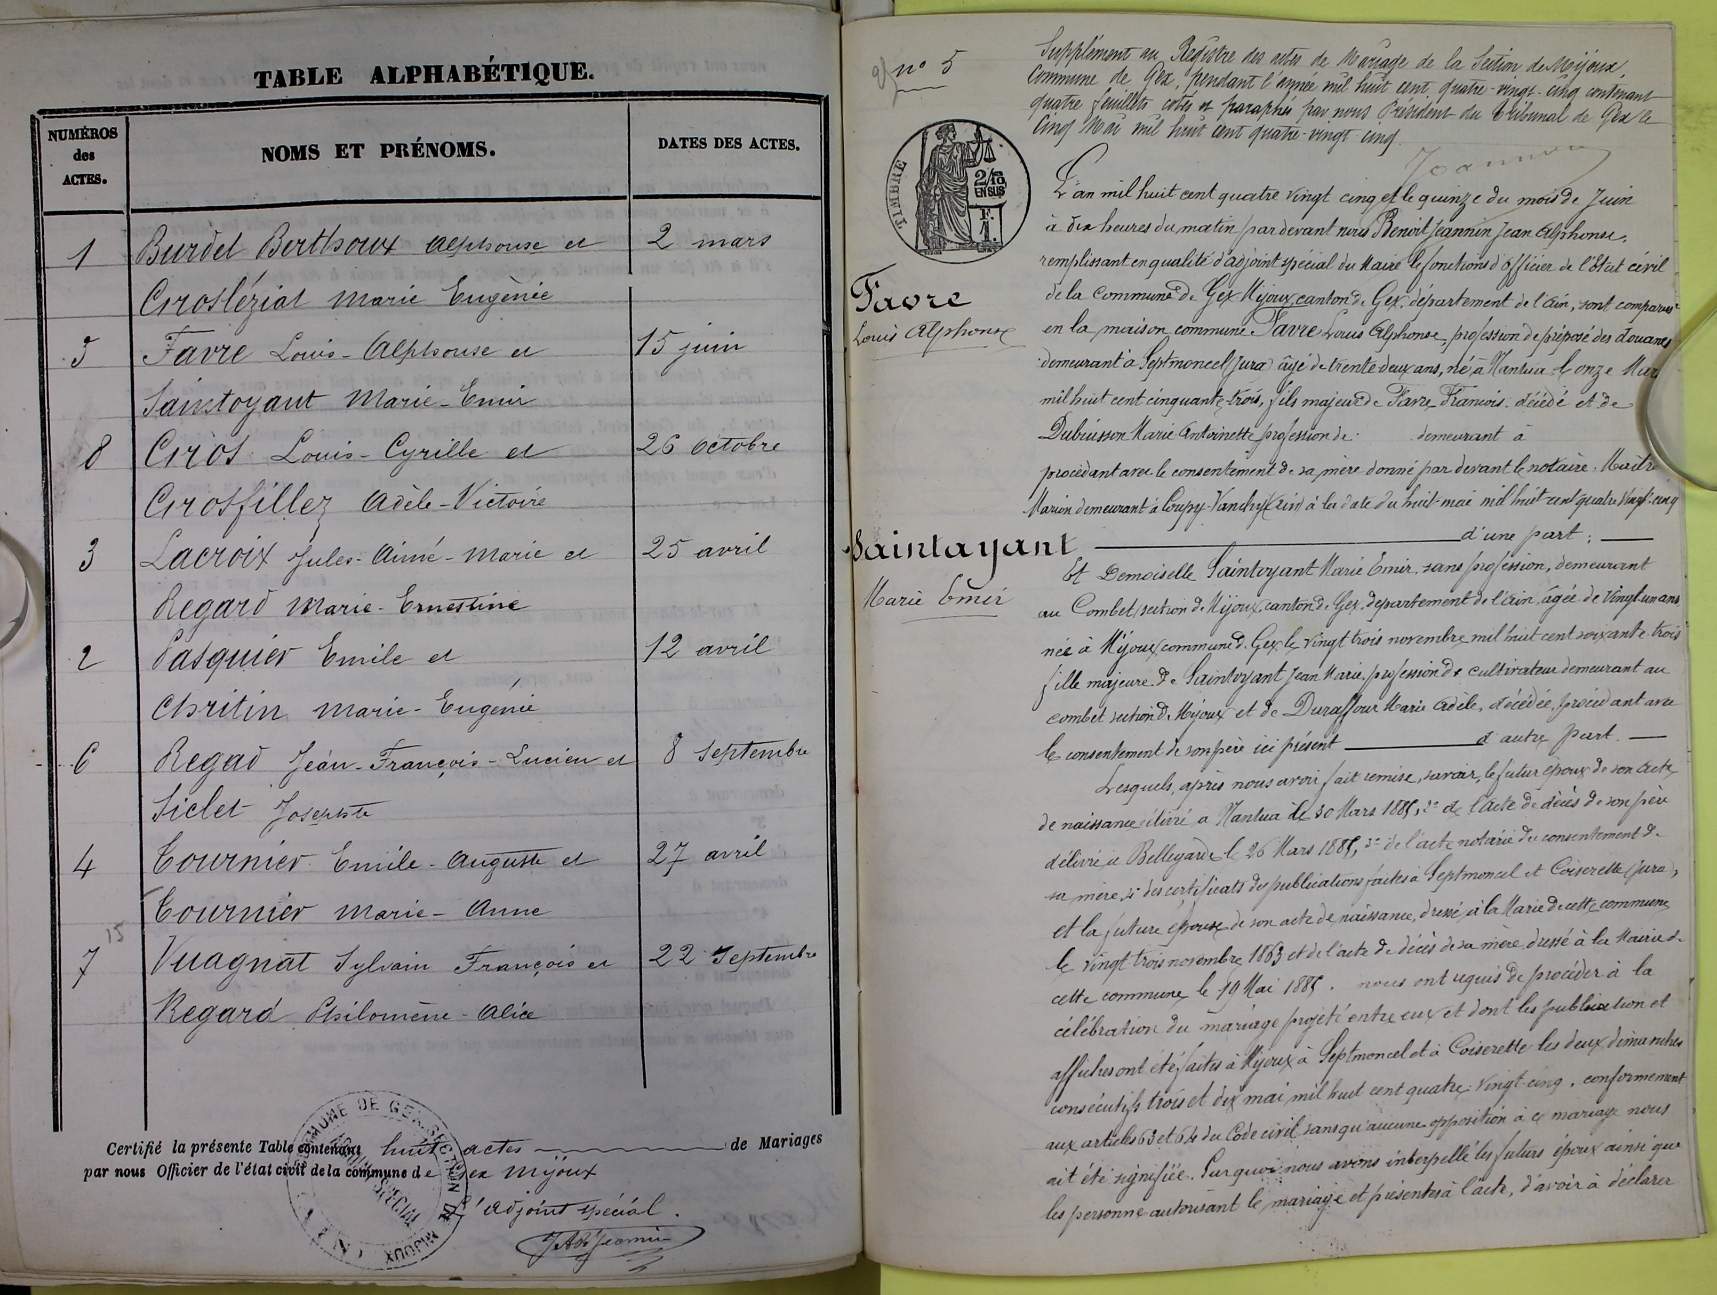 TABLE ALPHABÉTIQUE.
NUMÉROS
des
ACTES.
NOMS ET PRÉNOMS.
DATES DES ACTES.
1 Burdet Berthoux Alphonse et 2 mars
Grosléziat Marie Eugènie
5 Favre Louis-Alphonse et 15 juin
Saintoyant Marie-Emir
8 Gros Louis-Cyrille et 26 octobre
Grosfillez Adèle-Victoire
3 Lacroix Jules-Aimé-Marie et 25 avril
Regard Marie-Ernestine
2 Pasquier Emile et 12 avril
Chritin Marie-Eugénie
6 Regad Jean-François-Lucien et 8 septembre
Siclet Josephte
4 Tournier Emile-Auguste et 27 avril
Tournier Marie-Anne
15
7 Vuagnat Sylvain François et 22 septembre
Regard Philomène-Alice
Certifié la présente Table contenant huit actes de Mariages
par nous Officier de l'état civil de la commune de Gex Mijoux
L'adjoint spécial.
n° 5
Supplément au Registre des actes de Mariage de la Section de Mijoux,
Commune de Gex, pendant l'année mil huit cent quatre-vingt-cinq contenant
quatre feuillets cotés et paraphés par nous Président du Tribunal de Gex le
Cinq Mai mil huit cent quatre-vingt cinq
Joannon
TIMBRE
2/10
EN SUS
F.
1
L'an mil huit cent quatre vingt cinq et le quinze du mois de Juin
à dix heures du matin par devant nous Benoit Jeannin Jean Alphonse,
remplissant en qualité d'adjoint spécial du Maire les fonctions d'officier de l'Etat civil
de la Commune de Gex Mijoux, canton de Gex, département de l'Ain, sont comparus
Favre
Louis Alphonse
en la maison commune Favre Louis Alphonse, profession de préposé des douanes
demeurant à Septmoncel (Jura) âgé de trente deux ans, né à Nantua le onze Mars
mil huit cent cinquante-trois, fils majeur de Favre François décédé et de
Dubuisson Marie Antoinette profession de demeurant à
procédant avec le consentement de sa mère donné par devant le notaire Maître
Marion demeurant à Coupy-Vanchy (Ain) à la date du huit mai mil huit cent quatre vingt-cinq
d'une part;
Saintayant
Marie Emir
Et Demoiselle Saintoyant Marie Emir sans profession, demeurant
au Combet, section de Mijoux, canton de Gex, département de l'Ain, âgée de vingt un ans
née à Mijoux commune de Gex le vingt trois novembre mil huit cent soixante-trois
fille majeure de Saintoyant Jean Marie, profession de cultivateur demeurant au
combet section de Mijoux et de Duraffour Marie Adèle, décédée, procédant avec
le consentement de son père ici présent d'autre part.
Lesquels, après nous avoir fait remise, savoir, le futur époux de son acte
de naissance délivré à Nantua le 30 Mars 1885, 2° de l'acte de décès de son père
délivré à Bellegarde le 26 Mars 1885, 3° de l'acte notarié du consentement de
sa mère, 4° des certificats des publications faites à Septmoncel et Coiserette (Jura),
et la future épouse de son acte de naissance, dressé à la Mairie de cette commune
le vingt trois novembre 1863 et de l'acte de décès de sa mère dressé à la Mairie de
cette commune le 19 Mai 1885. nous ont requis de procéder à la
célébration du mariage projeté entre eux et dont les publication et
affiches ont été faites à Mijoux à Septmoncel et à Coiserette les deux dimanches
consécutifs trois et dix mai mil huit cent quatre-vingt cinq, conformément
aux articles 63 et 64 du Code civil, sans qu'aucune opposition à ce mariage nous
ait été signifiée. Sur quoi nous avons interpellé les futurs époux ainsi que
les personne autorisant le mariage et présentes à l'acte, d'avoir à déclarer